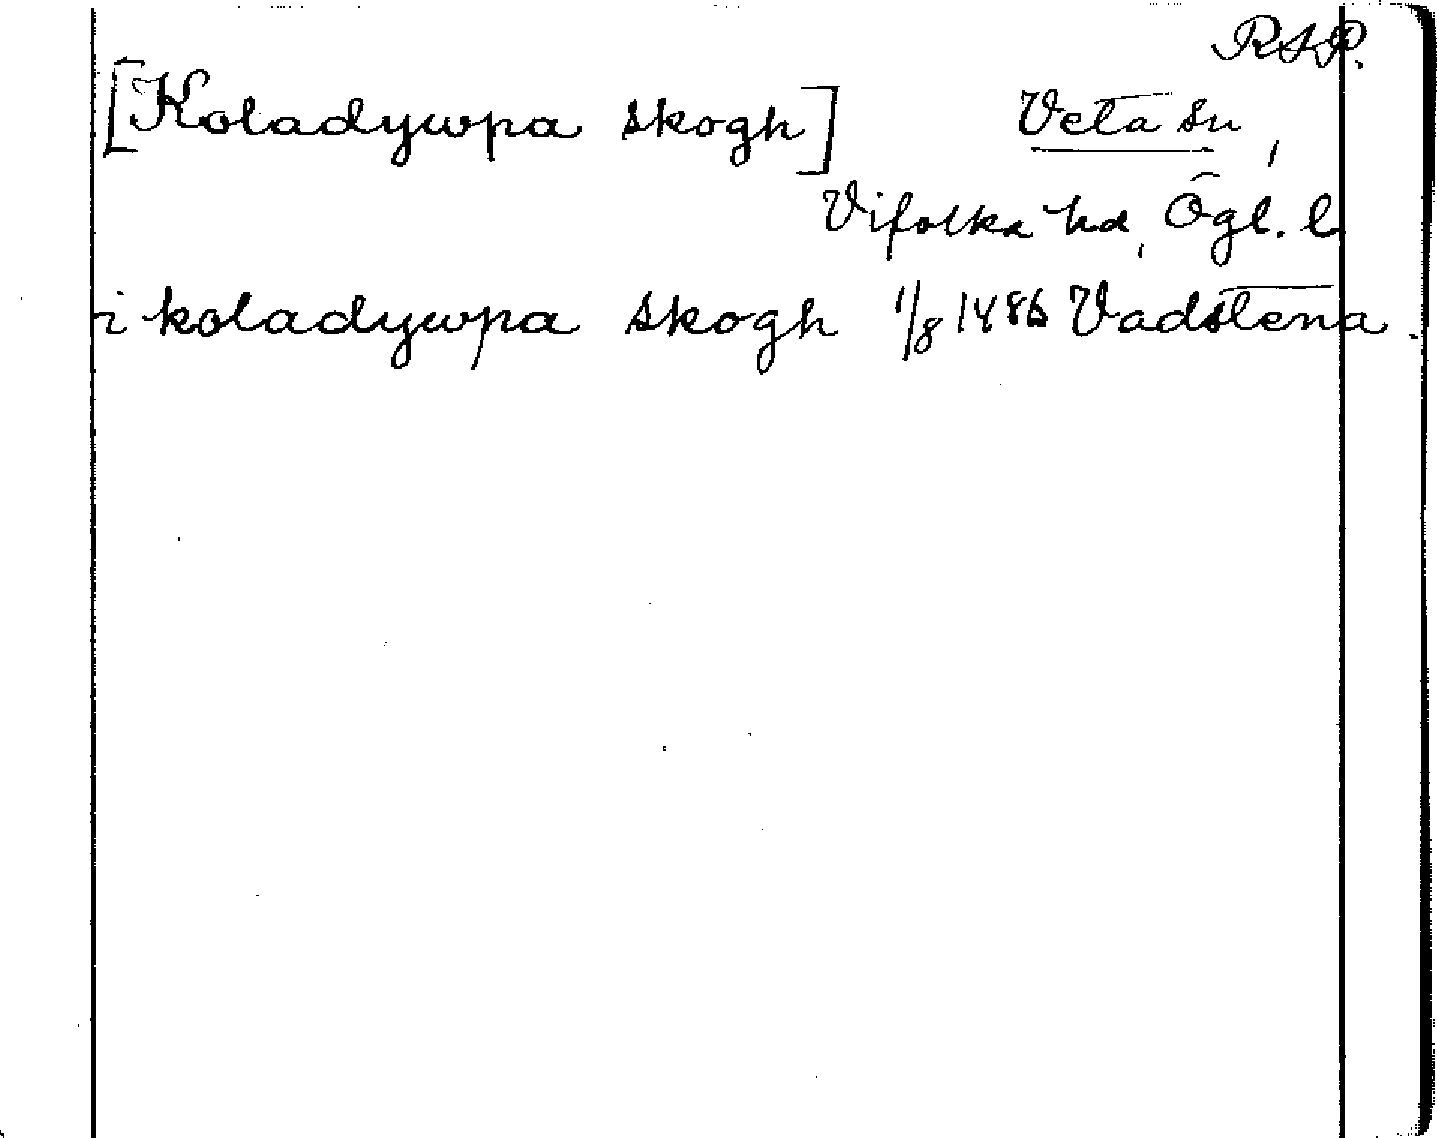 RAP.
[Koladywpa skogh] Veta sn,
Vifolka hd, Ögl. l
i koladywpa skogh 1/8 1486 Vadstena.